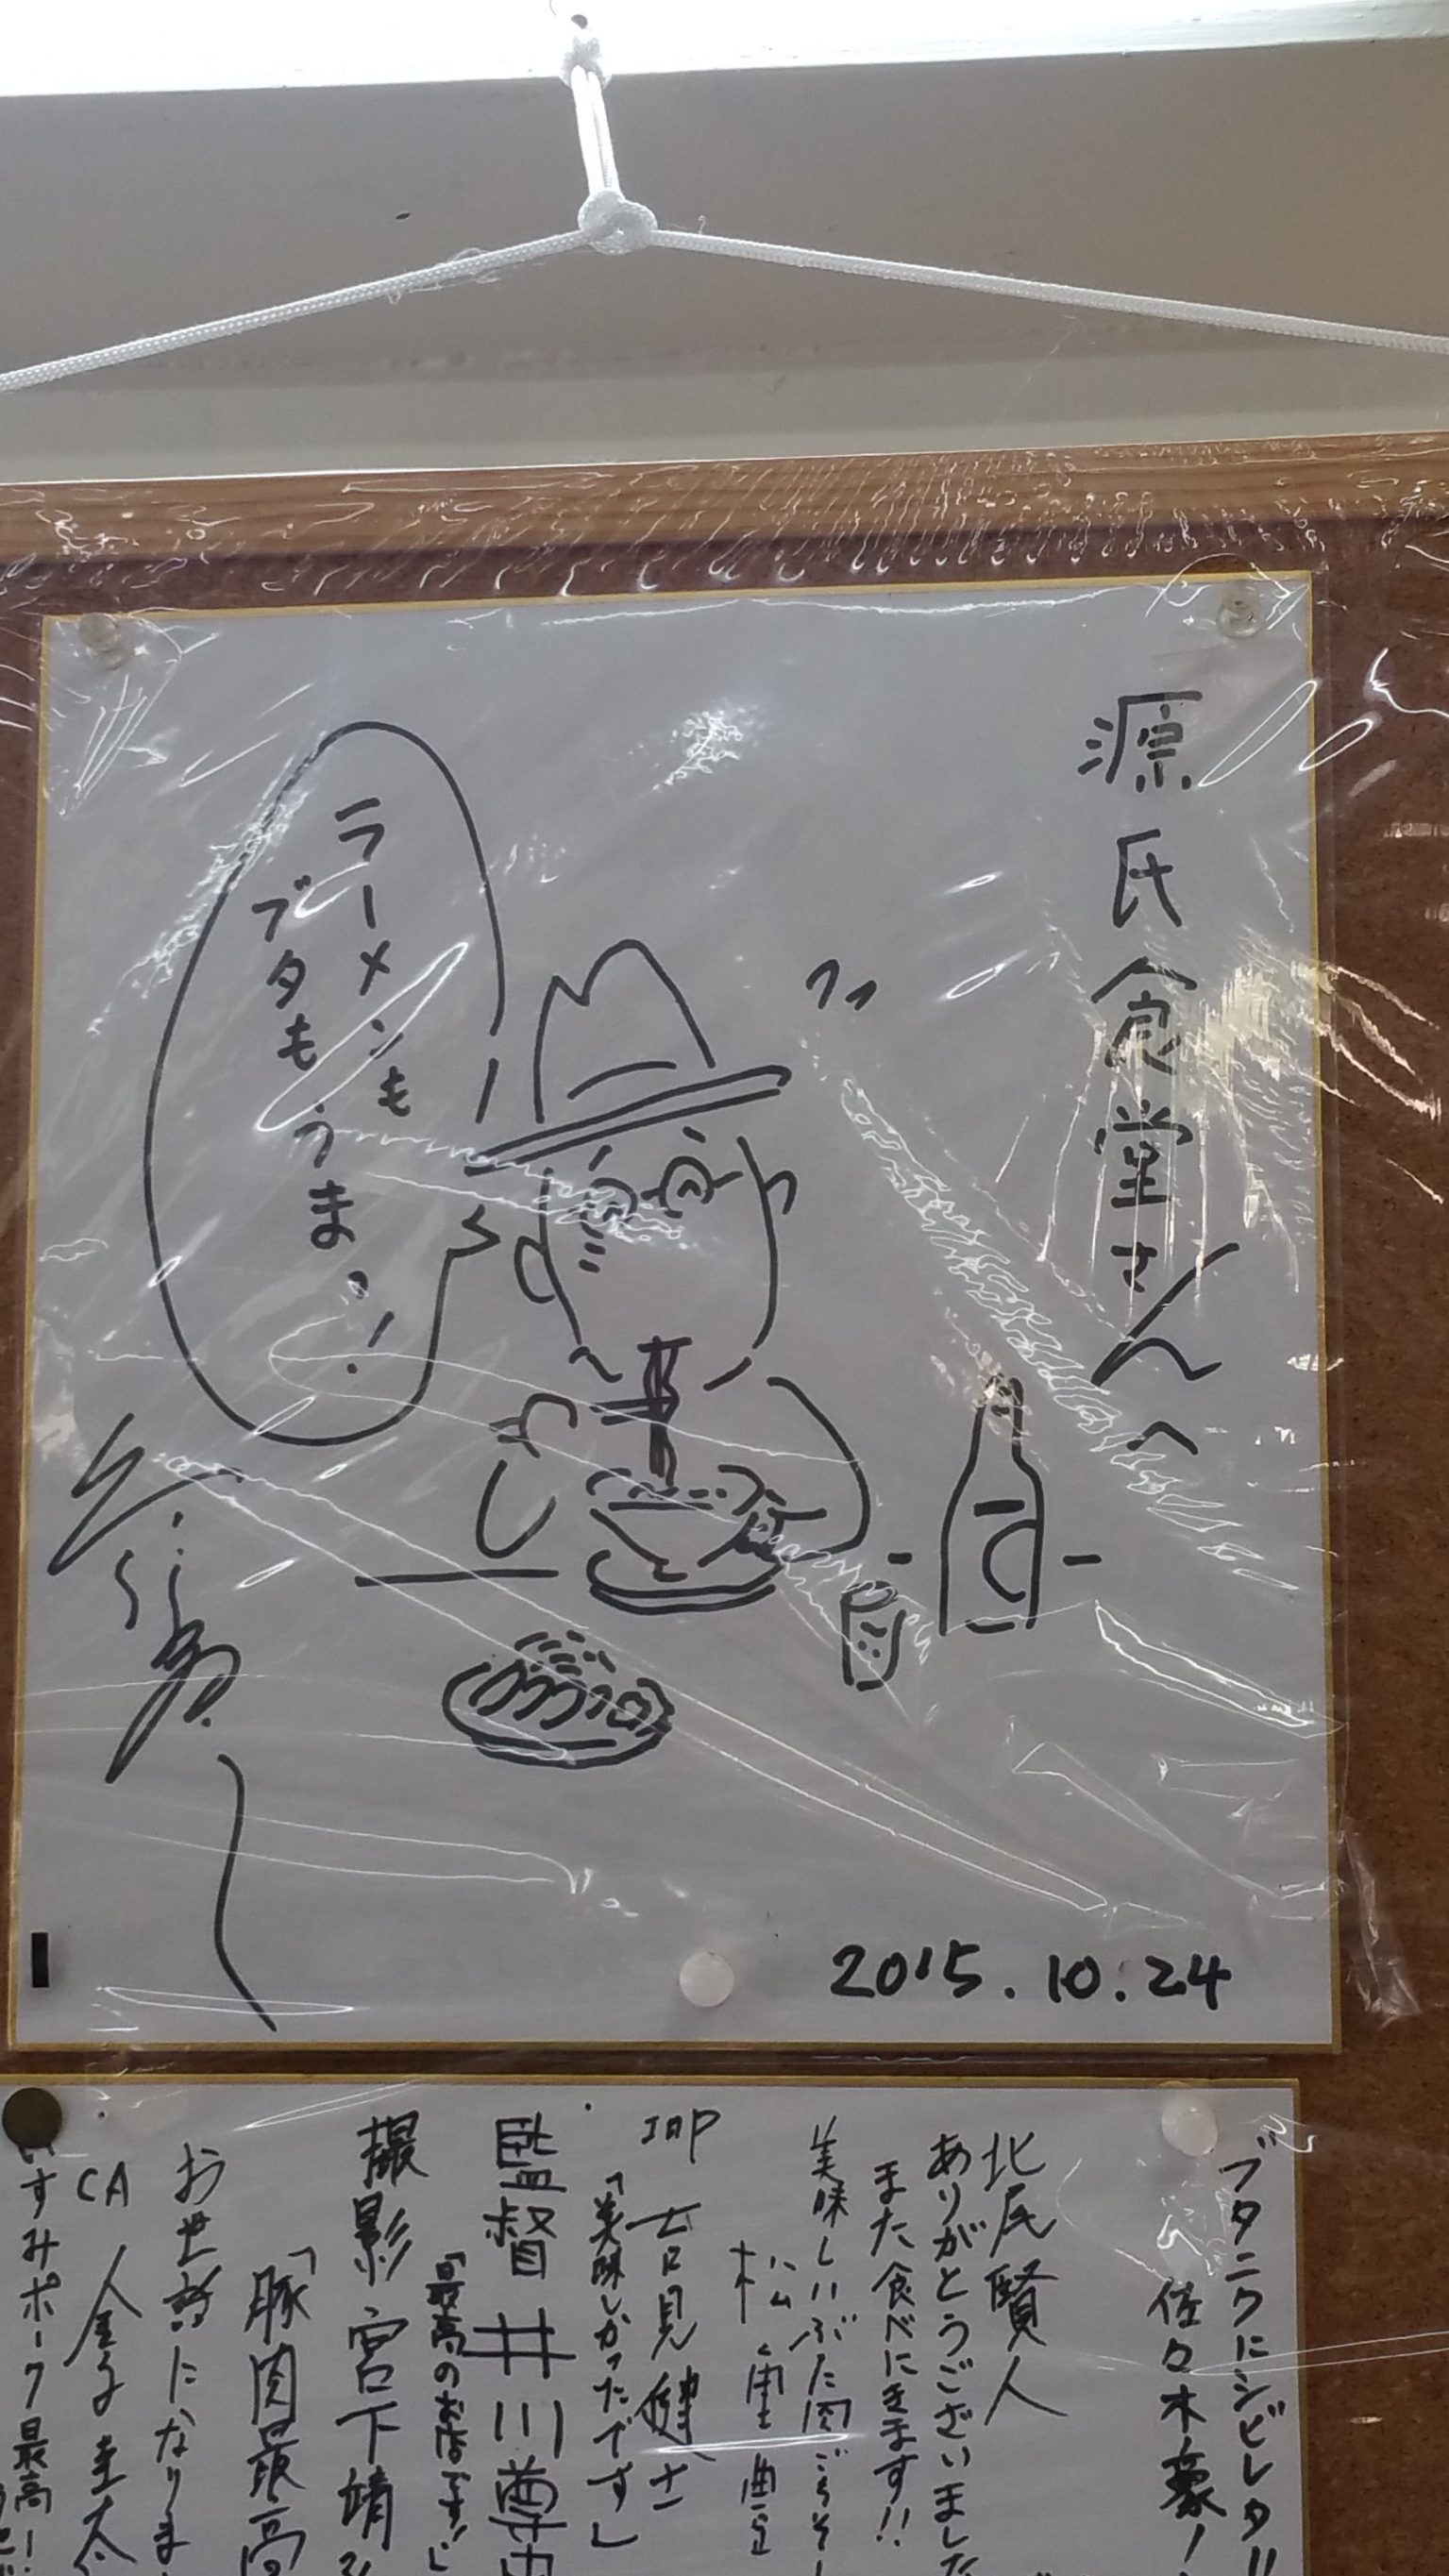 源氏食堂さんへ
ラーメンも
ブタもうまい!
2015.10.24
ブタニクにシビレタ!!
佐々木豪!
北尻賢人
ありがとうございました
また食べにきます!!
美味しいぶた肉ごちそ
松
吉見健
「美味しかったです」
監督 井川尊史
「最高のお店です!」
撮影 宮下靖
「豚肉最高
お世話になりま
CA 金子圭太
いすみポーク最高!